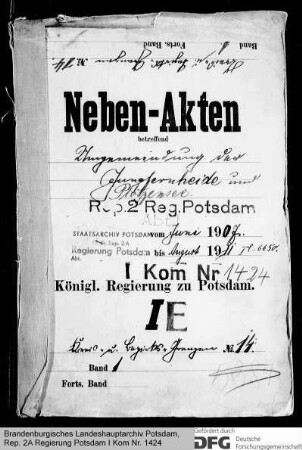 Band 1
Forts. Band
Kreis- u. Bezirks-Grenzen № 14.
Neben-Akten
betreffend
Umgemeindung der
Jungfernheide und
Plötzensee
Rep. 2 Reg. Potsdam
Abt.
STAATSARCHIV POTSDAM vom Juni 1907.
Rep. 2A
Regierung Potsdam bis August 1911
Abt.
I Kom Nr 1424
Königl. Regierung zu Potsdam.
I E
Kreis- u. Bezirks-Grenzen № 14.
Band 1
Forts. Band
Brandenburgisches Landeshauptarchiv Potsdam,
Rep. 2A Regierung Potsdam I Kom Nr. 1424
Gefördert durch
DFG Deutsche
Forschungsgemeinschaft